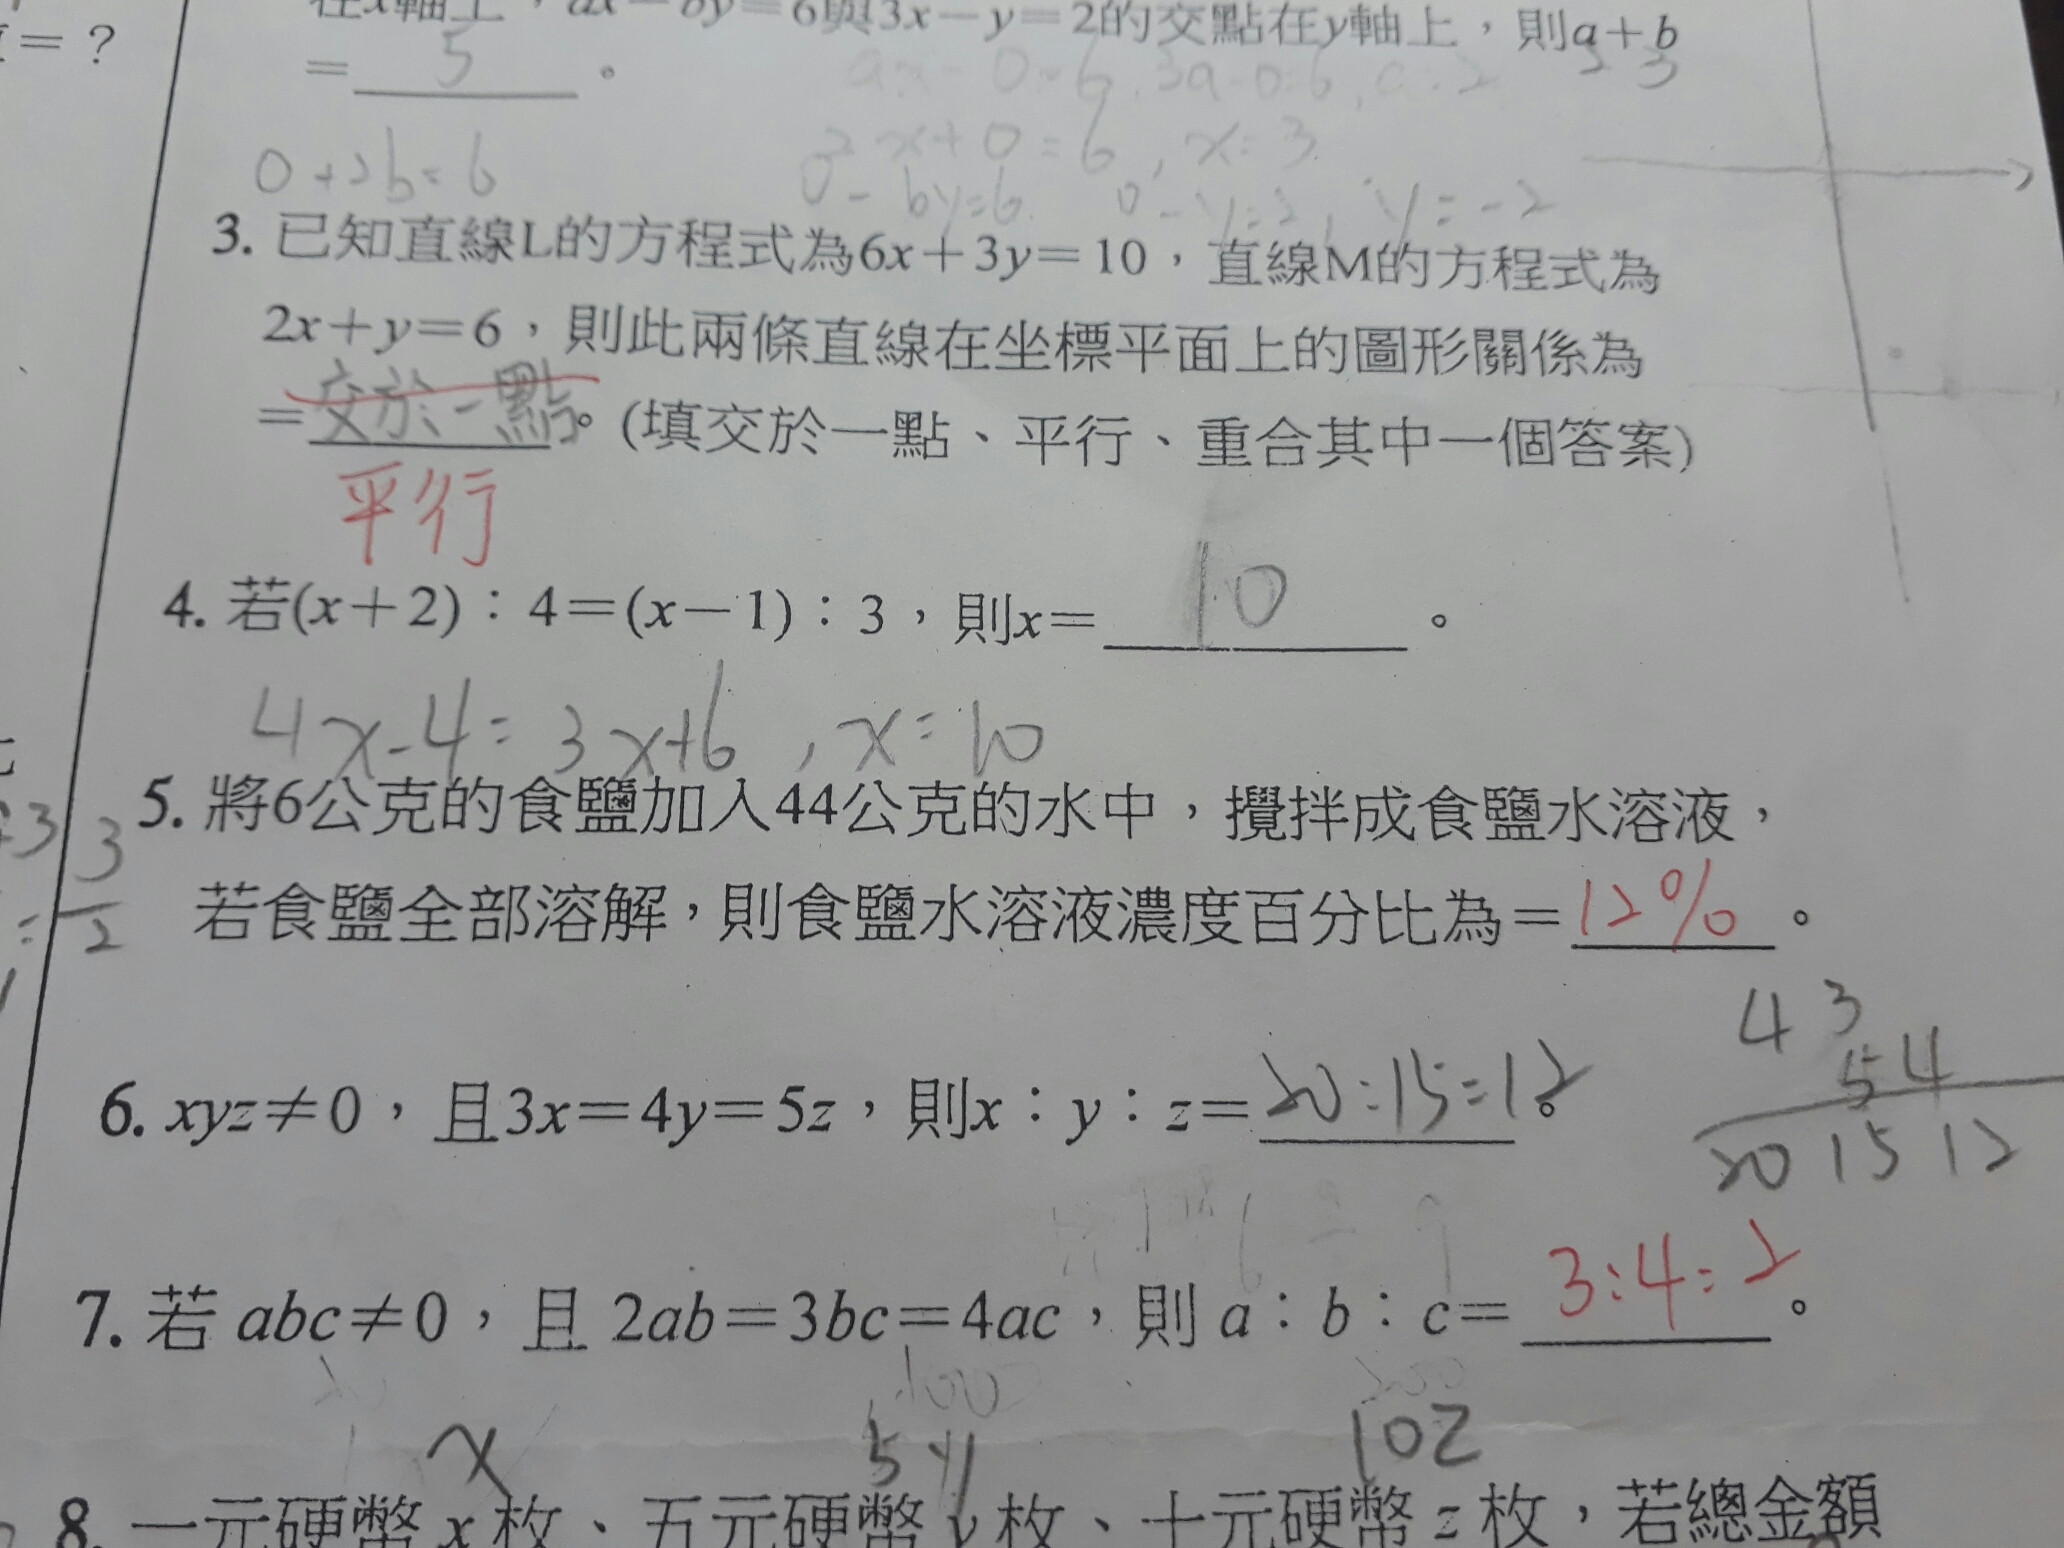 在x軸上，ax－by＝6與3x－y＝2的交點在y軸上，則a＋b
＝？
2 3
＝ 5 。
ax - 0 = 6, 3a - 0 = 6, a = 2
2x + 0 = 6, x = 3
0 + 2b = 6
0 - by = 6 0 - y = 2, y = -2
3. 已知直線L的方程式為6x＋3y＝10，直線M的方程式為
2x＋y＝6，則此兩條直線在坐標平面上的圖形關係為
＝交於一點。(填交於一點、平行、重合其中一個答案)
平行
4. 若(x＋2)：4＝(x－1)：3，則x＝ 10 。
4x-4=3x+6 , x=10
5. 將6公克的食鹽加入44公克的水中，攪拌成食鹽水溶液，
若食鹽全部溶解，則食鹽水溶液濃度百分比為＝12%。
3
= 3/2
4 3
5 4
20 15 12
6. xyz≠0，且3x＝4y＝5z，則x：y：z＝20:15:12。
7. 若 abc≠0，且 2ab＝3bc＝4ac，則 a：b：c＝ 3:4:2 。
100 200
x 5y 10z
8. 一元硬幣 x 枚、五元硬幣 y 枚、十元硬幣 z 枚，若總金額